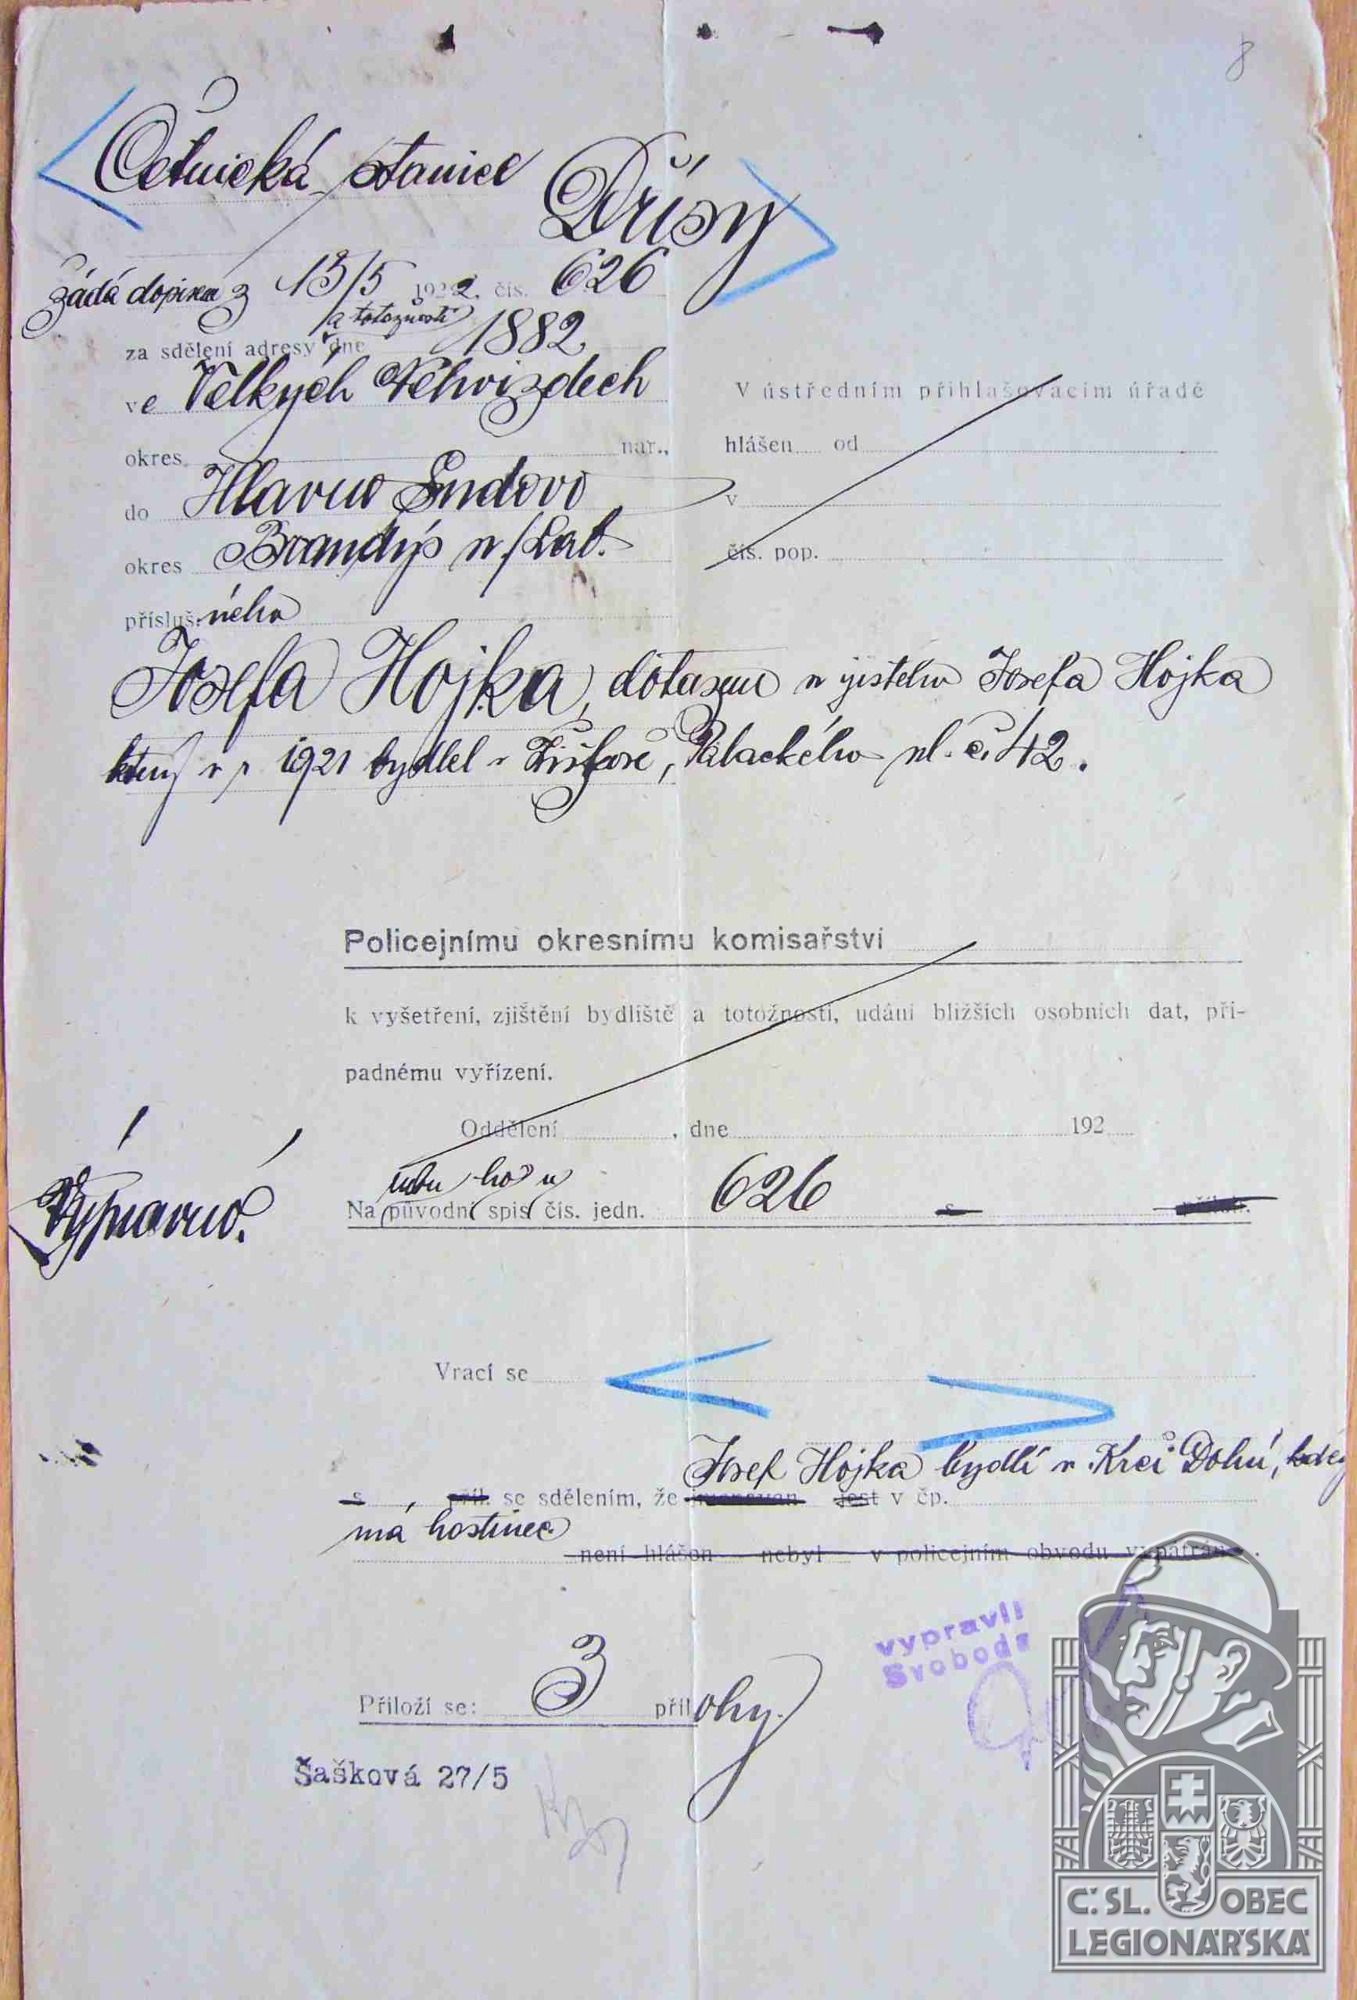 8
Četnická stanice
Dřísy
žádá dopisem z 15/5 1922. čís. 626
a totožnosti
za sdělení adresy dne 1882
ve Velkých Nehvizdech
okres nar.,
do
okres Brandýs n/Lab.
přísluš. ného
Josefa Hojka, dotazem u jistého Josefa Hojka
který v r 1921 bydlel v Žižkově, Palackého ul. č. 42.
V ústředním přihlašovacím úřadě
hlášen od
v
čís. pop.
Policejnímu okresnímu komisařství
k vyšetření, zjištění bydliště a totožnosti, udání bližších osobních dat, pří-
padnému vyřízení.
Oddělení , dne 192
Na původní spis čís. jedn. 626 s příloh.
Vypraveno.
Vrací se
Josef Hojka bydlí v Krči Dolní, kde
s příl. se sdělením, že jmenovan jest v čp.
má hostinec
není hlášen nebyl v policejním obvodu vypátrán.
vypravil
Svoboda
Přiloží se: 3 přílohy.
Šašková 27/5
Č. SL. OBEC
LEGIONÁŘSKÁ